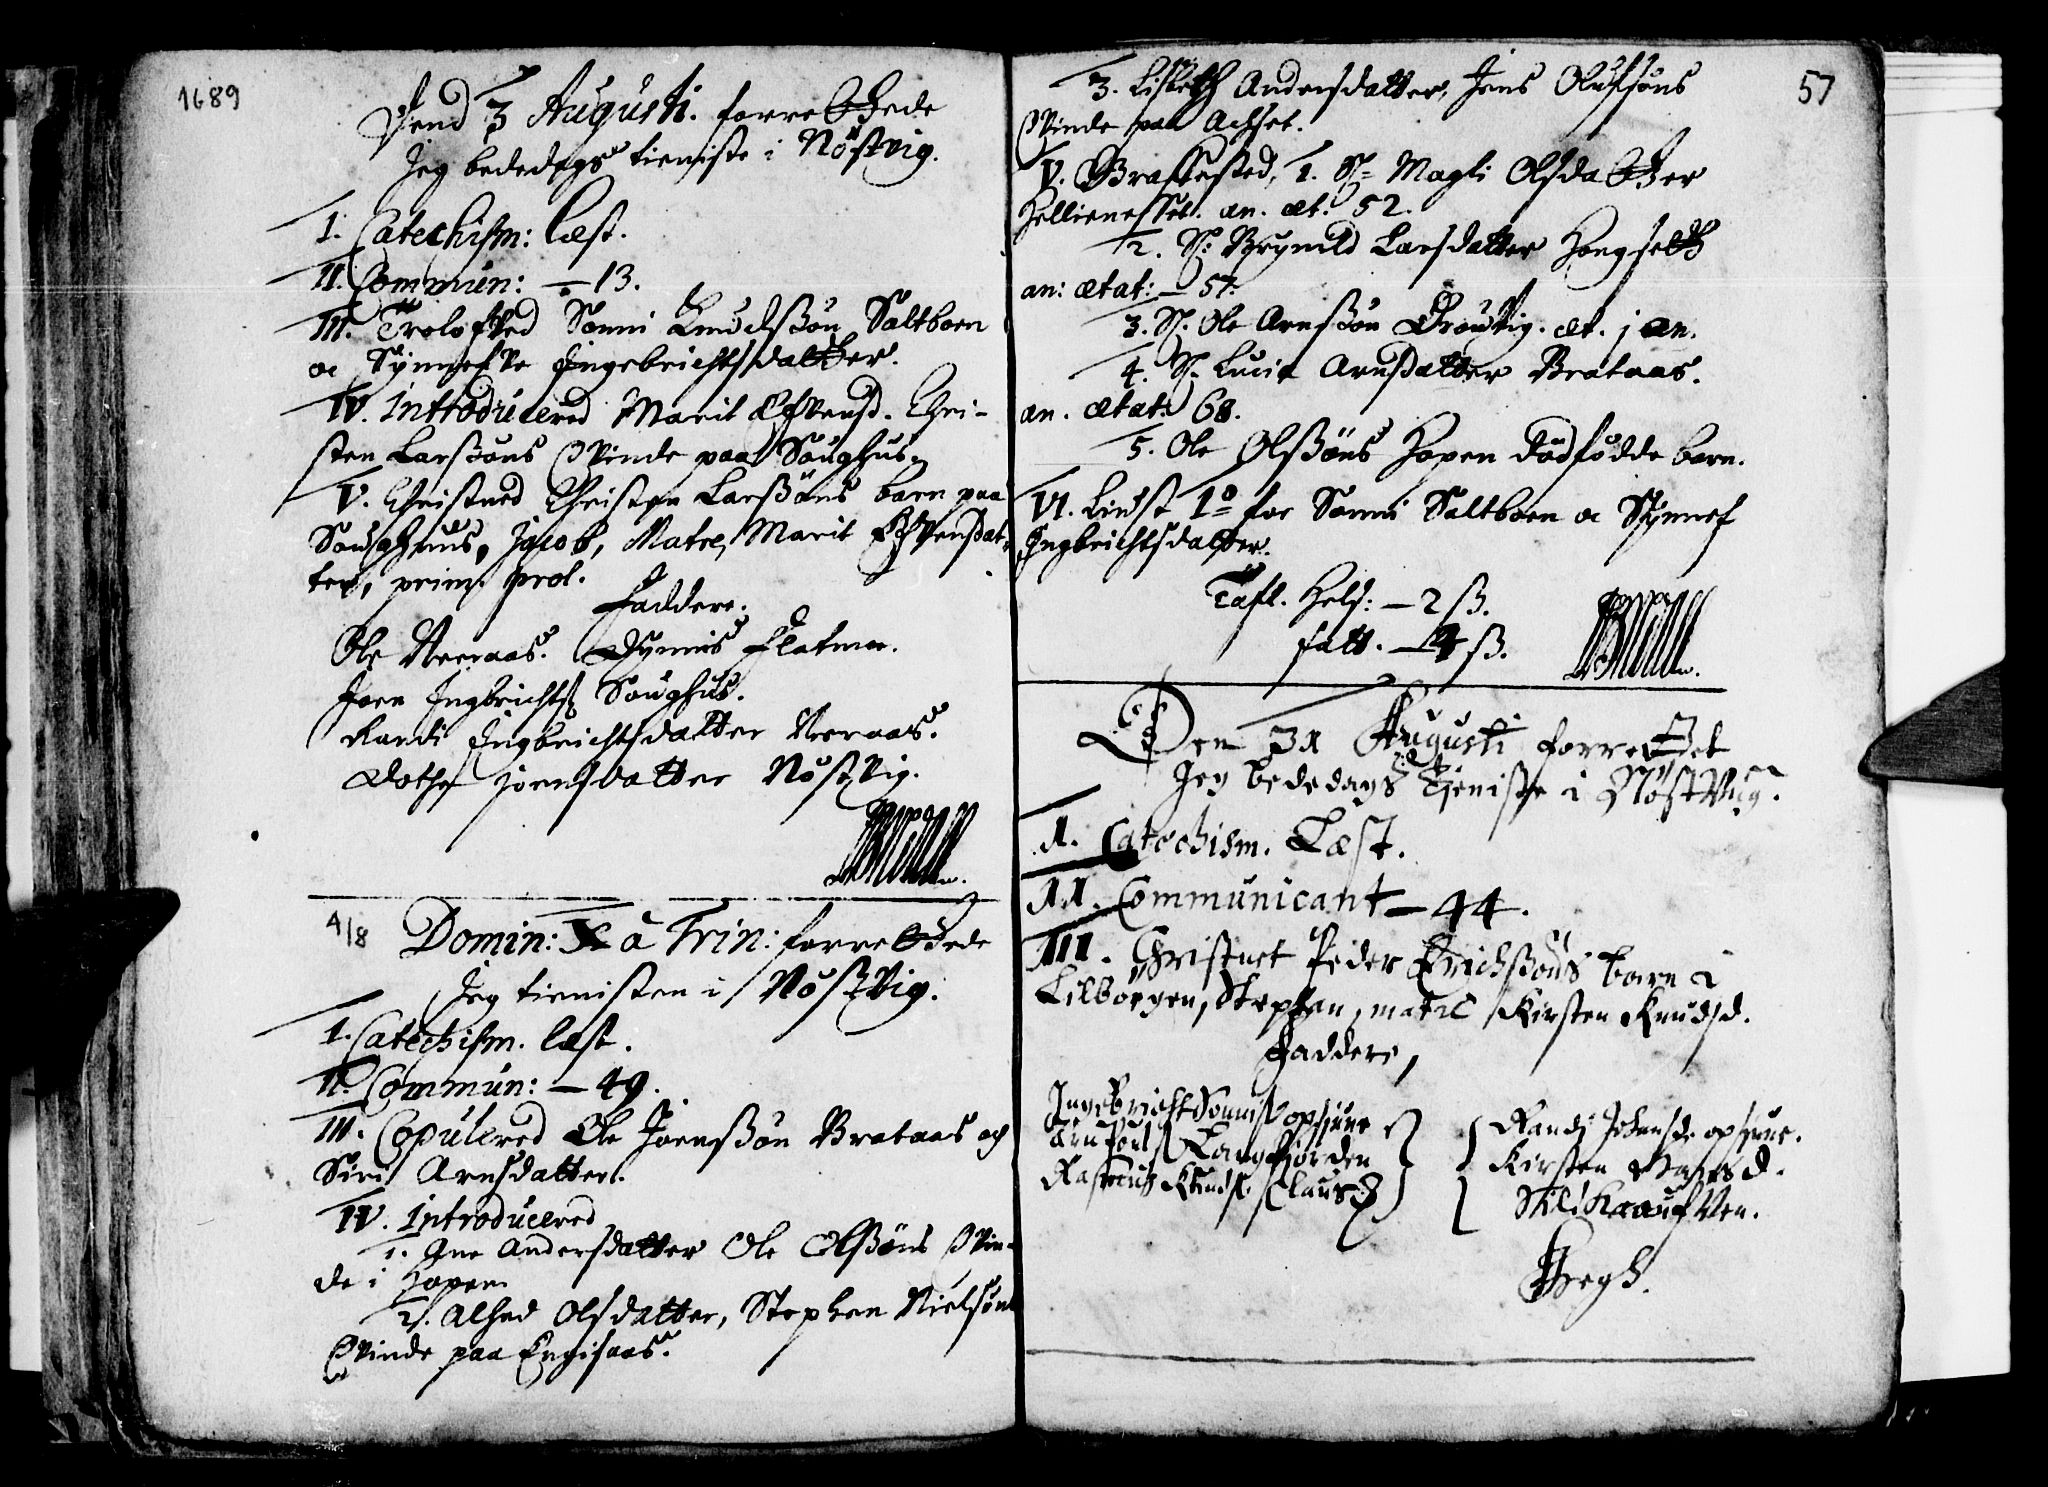 1689
Dend 3 Augusti. forrettede
Jeg bededags tieniste i Nöstvig.
I. Catechism: læst.
II. Commun: — 13.
III. Trolofved Sonni Knudssön Saltboen
oc Synnefve Ingebrichtsdatter.
IV. Introducered Marit Estensd. Chri-
sten Larssöns Qvinde paa Soughus.
V. Christned Christen Larssöns barn paa
Soughuus, Jacob, Matre, Marit Estensdat-
ter, prim. prol.
Faddere.
Ole Neeraas. Dynnis Flatmo.
Joen Ingbrichts Soughus.
Randi Ingbrichtsdatter Neeraas.
Dothe Joensdatter Nöstvig.
4/8 Domin: X à Trin: forrettede
Jeg tienisten i Nöstvig.
I. Catechism. læst.
II. Commun: — 49.
III. Copulered Ole Joenssön Brataas og
Siri Arnsdatter.
IV. Introducered
1. Ane Andersdatter Ole Olssöns Qvin-
de i Hopen
2. Alhed Olsdatter, Stephen Nielsöns
Qvinde paa Engisaas.
57
3. Lisbeth Andersdatter, Jens Olufsöns
Qvinde paa Achset.
V. Graffested, 1. S: Magli Olsdatter
Hellienesset. an. æt. 52.
2. S: Brynild Larsdatter Hougseth
an: ætat: — 57.
3. S. Ole Arnssön Grouvig. æt. 1 an.
4. S. Lucia Arnsdatter Brataas.
an. ætat: 68.
5. Ole Olssöns Hopen dödfödde barn.
VI. Liust 1º for Sonni Saltboen oc Synnef
Ingbrichtsdatter.
Tafl. Hels: — 2 ß.
fatt. — 4 ß.
Den 31 Augusti forrettet
Jeg bededags Tjeniste i Nöstvig.
I. Catechism. Læst.
II. Communicant — 44.
III. Christnet Peder Erichssöns barn i
Lilborgen, Stephan, matre Kirsten Knudsd.
Faddere,
Ingebricht Sonnis opsiune
Langfjorden
Rasmus Knuds. Claus
Randj Johansd. opsiune.
Kirsten
Kregh.